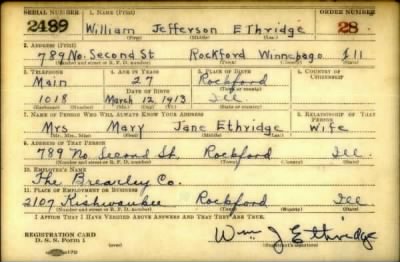 SERIAL NUMBER 1. NAME (Print) ORDER NUMBER
2489 William Jefferson Ethridge 28
(First) (Middle) (Last)
2. ADDRESS (Print)
789 No. Second St Rockford Winnebago Ill
(Number and street or R. F. D. number) (Town) (County) (State)
3. TELEPHONE 4. AGE IN YEARS 5. PLACE OF BIRTH 6. COUNTRY OF CITIZENSHIP
Main 27 Rockford
DATE OF BIRTH (Town or county)
1018 March 12 1913 Ill
(Mo.) (Day) (Yr.) (State or country)
7. NAME OF PERSON WHO WILL ALWAYS KNOW YOUR ADDRESS 8. RELATIONSHIP OF THAT PERSON
Mrs Mary Jane Ethridge Wife
(Mr., Mrs., Miss) (First) (Middle) (Last)
9. ADDRESS OF THAT PERSON
789 No Second St. Rockford Ill.
(Number and street or R. F. D. number) (Town) (County) (State)
10. EMPLOYER'S NAME
The Brearley Co.
11. PLACE OF EMPLOYMENT OR BUSINESS
2107 Kishwaukee Rockford Ill
(Number and street or R. F. D. number) (Town) (County) (State)
I AFFIRM THAT I HAVE VERIFIED ABOVE ANSWERS AND THAT THEY ARE TRUE.
REGISTRATION CARD
D. S. S. Form 1
Wm J Ethridge
(Registrant's signature)